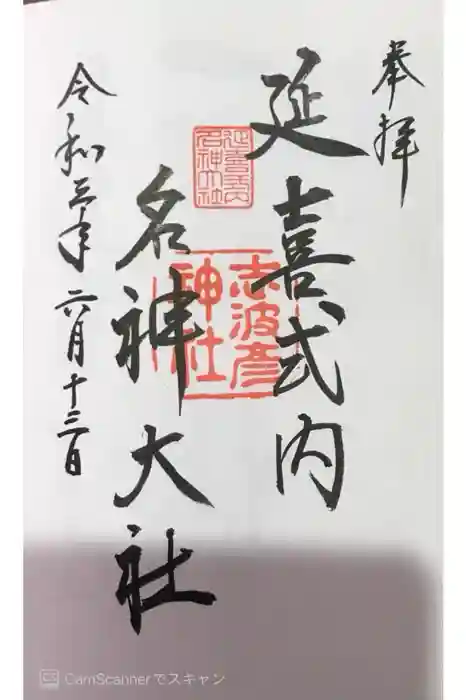 奉拝
延喜式内
名神大社
令和三年六月十三日
延喜式内
名神大社
志波彦
神社
CamScannerでスキャン